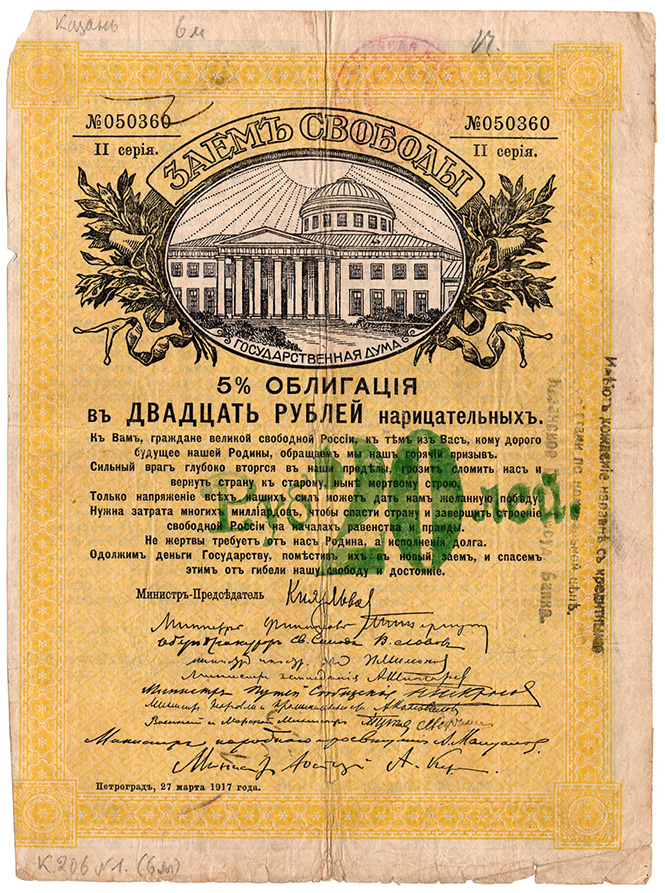 Казань
6 м
№050360
II серія.
№050360
II серія.
ЗАЕМЪ СВОБОДЫ
ГОСУДАРСТВЕННАЯ ДУМА
5% ОБЛИГАЦІЯ
въ ДВАДЦАТЬ РУБЛЕЙ нарицательныхъ.
Къ Вамъ, граждане великой свободной Россіи, къ тѣмъ изъ Васъ, кому дорого
будущее нашей Родины, обращаемъ мы нашъ горячій призывъ.
Сильный врагъ глубоко вторгся въ наши предѣлы, грозитъ сломить насъ и
вернуть страну къ старому, нынѣ мертвому строю.
Только напряженіе всѣхъ нашихъ силъ можетъ дать намъ желанную побѣду.
Нужна затрата многихъ милліардовъ, чтобы спасти страну и завершить строеніе
свободной Россіи на началахъ равенства и правды.
Не жертвы требуетъ отъ насъ Родина, а исполненія долга.
Одолжимъ деньги Государству, помѣстивъ ихъ въ новый заемъ, и спасемъ
этимъ отъ гибели нашу свободу и достояніе.
20
рублей.
Имѣютъ хожденіе наравнѣ съ кредитными
билетами по нарицательной цѣнѣ.
Банка.
Министръ-Предсѣдатель Князь Львов
Министръ Финансовъ Терещенко
Оберъ Прокуроръ Св. Синода В. Львовъ
Министръ Земледѣлія А Шингарев
Министръ Путей Сообщенія Н Некрасов
Министр Торговли и Промышленности А Коновалов
Военный и Морской Министр Гучков
Министръ народнаго просвѣщенія А. Мануйлов
Министр Юстиціи А. Кер
Петроградъ, 27 марта 1917 года.
К.206 №1. (6м)